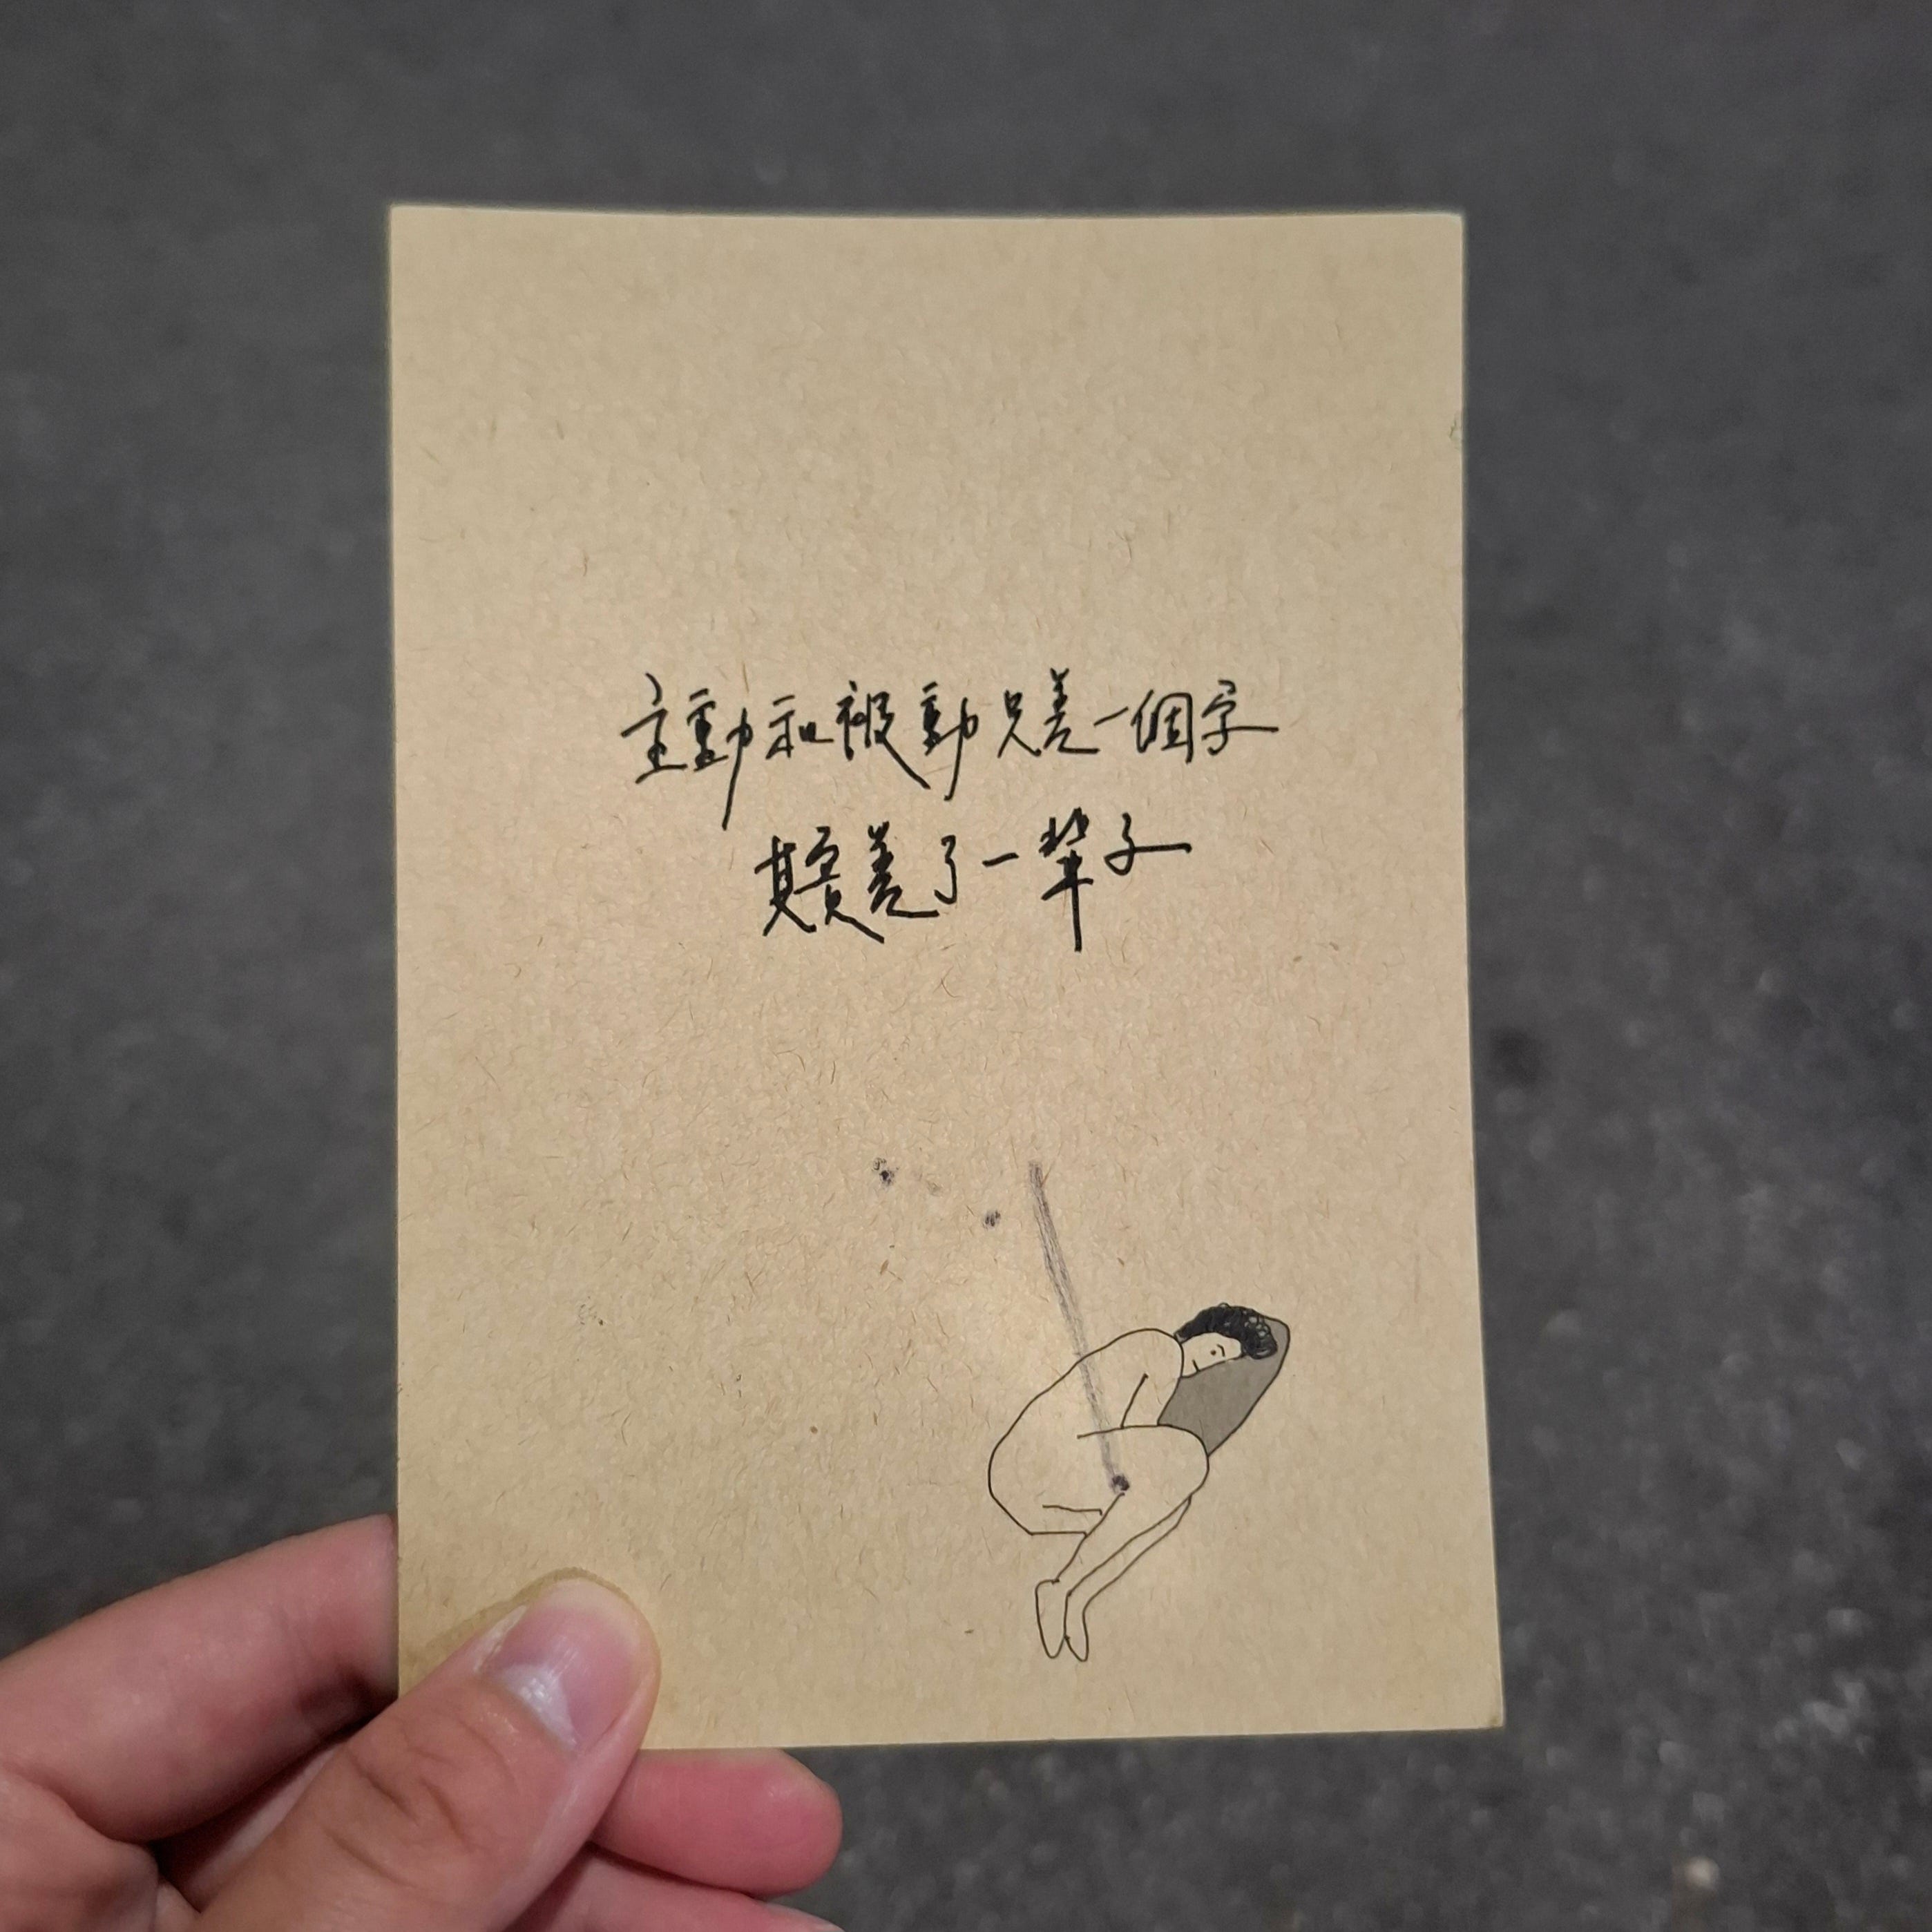 主動和被動只差一個字
其實差了一輩子